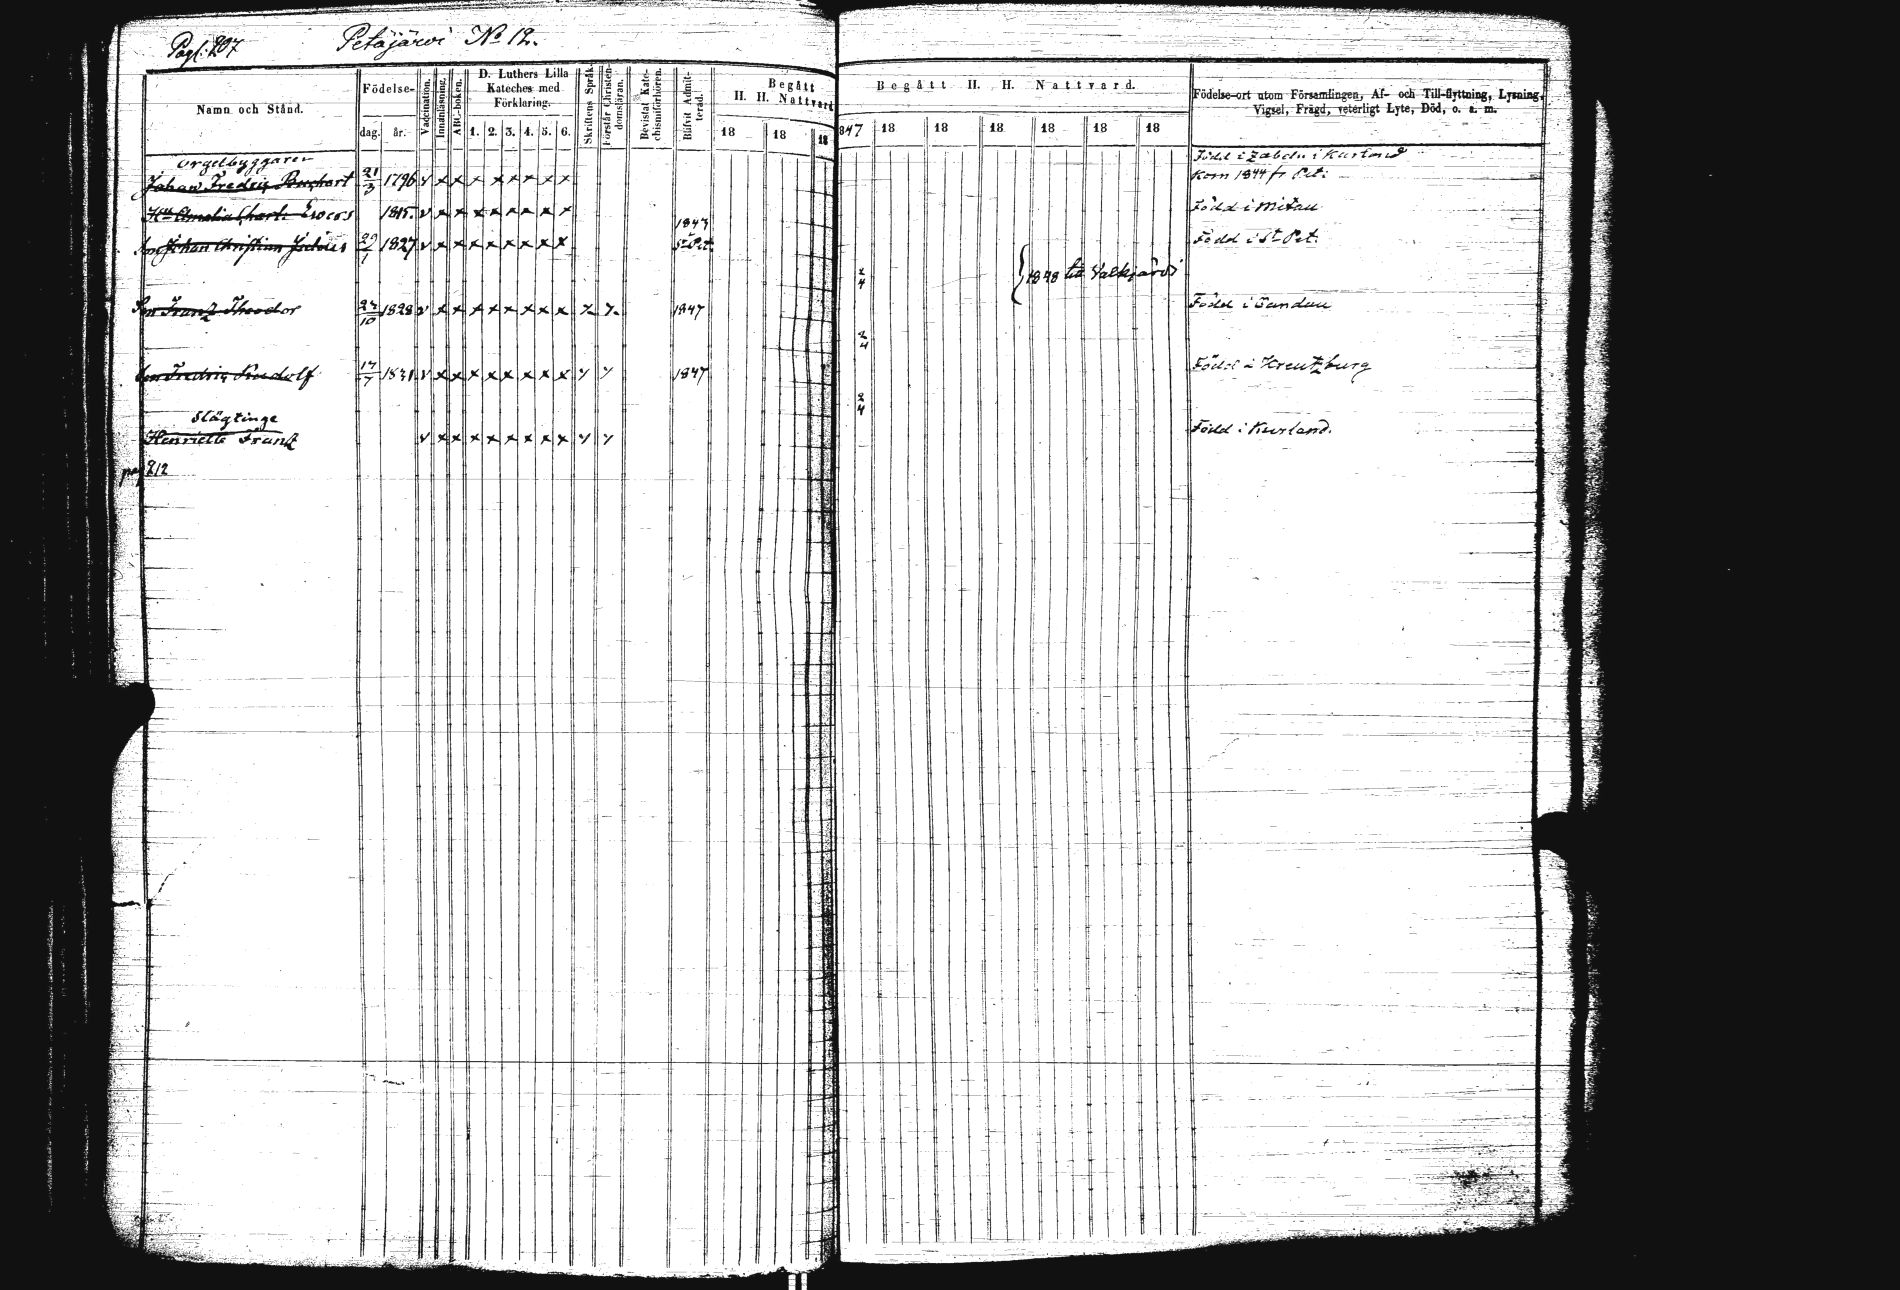 Pag: 207 Petäjärvi No 12.
Namn och Stånd.
Födelse-
dag. år.
Vaccination.
Innanläsning.
ABC-boken.
D. Luthers Lilla
Kateches med
Förklaring.
1. 2. 3. 4. 5. 6.
Skriftens Språk.
Förstår Christen-
domsläran.
Bevistat Kate-
chismiförhören.
Blifvit Admit-
terad.
Begått
H. H. Nattvard
18 18 18
Begått H. H. Nattvard.
847 18 18 18 18 18 18
Födelse-ort utom Församlingen, Af- och Till-flyttning, Lysning,
Vigsel, Frägd, veterligt Lyte, Död, o. a. m.
Orgelbyggaren
Johan Fredric 21/3 1796 v x x x x x x x x
Född i Zabeln i Kurland
Kom 1844 fr Pet:
H:u Amalia Charl: Ewers 1815. v x x x x x x x x
Född i Mitau
Son Johan Christian 29/1 1827 v x x x x x x x x 1847 St Pet.
Född i St Pet.
2/4
1848 till Valkjärvi
Son Frantz Theodor 24/10 1828 v x x x x x x x x x x 1847
Född i Candau
2/4
Son Fredric Rudolf 17/7 1831 v x x x x x x x x x x 1847
Född i Kreutzburg
2/4
Slägtinge
Henriette Frantz v x x x x x x x x x x
Född i Kurland.
pag 212